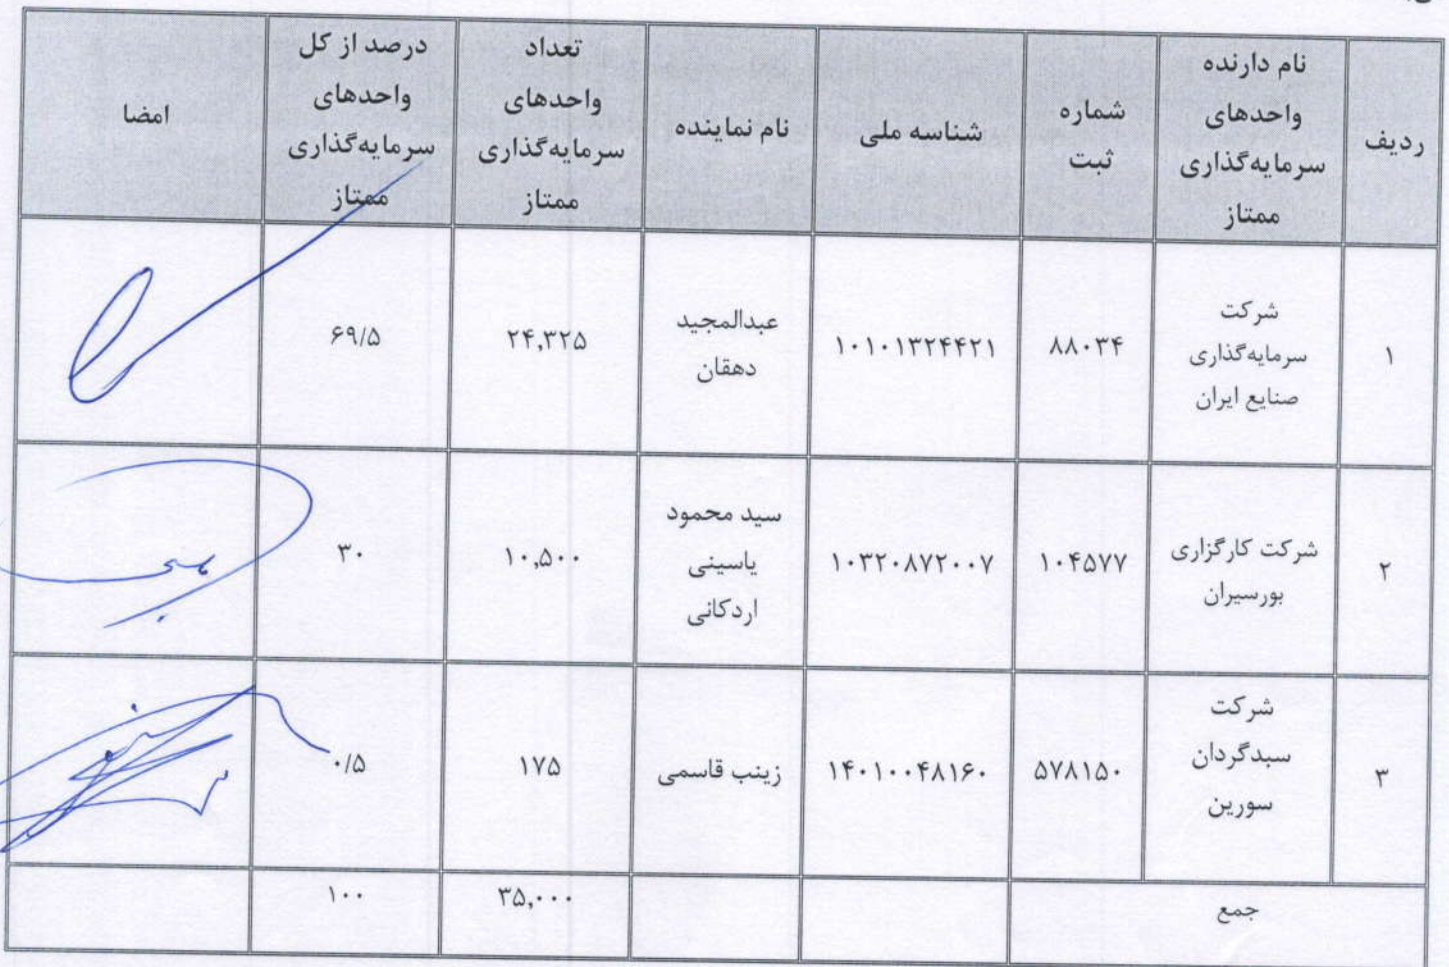 ردیف
نام دارنده
واحدهای
سرمایه‌گذاری
ممتاز
شماره
ثبت
شناسه ملی
نام نماینده
تعداد
واحدهای
سرمایه‌گذاری
ممتاز
درصد از کل
واحدهای
سرمایه‌گذاری
ممتاز
امضا
۱
شرکت
سرمایه‌گذاری
صنایع ایران
۸۸۰۳۴
۱۰۱۰۱۳۲۴۴۲۱
عبدالمجید
دهقان
۲۴,۳۲۵
۶۹/۵
۲
شرکت کارگزاری
بورسیران
۱۰۴۵۷۷
۱۰۳۲۰۸۷۲۰۰۷
سید محمود
یاسینی
اردکانی
۱۰,۵۰۰
۳۰
۳
شرکت
سبدگردان
سورین
۵۷۸۱۵۰
۱۴۰۱۰۰۴۸۱۶۰
زینب قاسمی
۱۷۵
۰/۵
جمع
۳۵,۰۰۰
۱۰۰